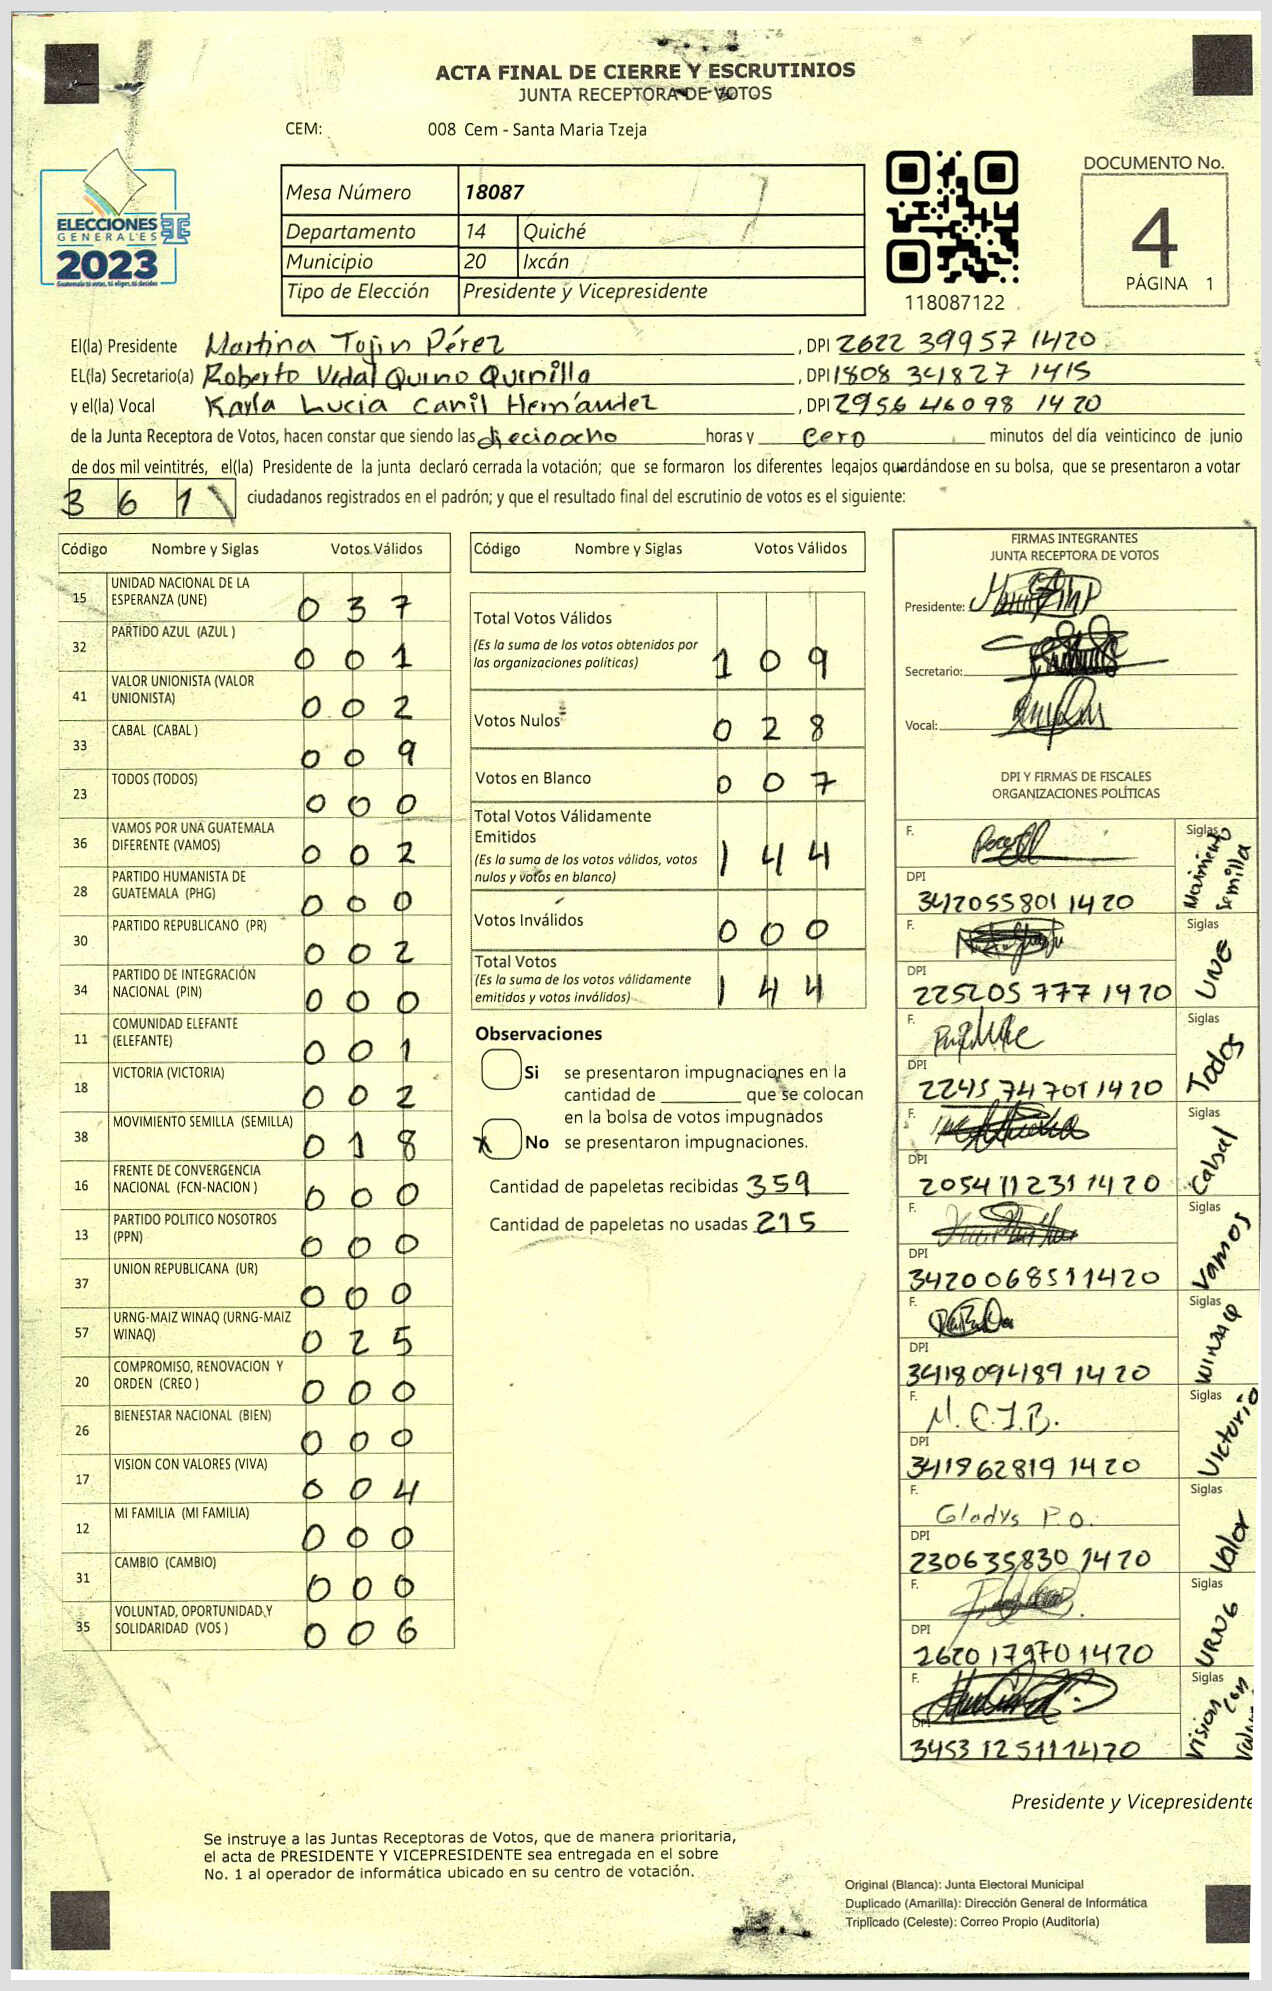 ACTA FINAL DE CIERRE Y ESCRUTINIOS
JUNTA RECEPTORA DE VOTOS
CEM: 008 Cem - Santa Maria Tzeja
ELECCIONES
GENERALES
2023
Mesa Número 18087
Departamento 14 Quiché
Municipio 20 Ixcán
Tipo de Elección Presidente y Vicepresidente
118087122
DOCUMENTO No.
4
PÁGINA 1
El(la) Presidente Martina Tojin Pérez , DPI 2622 39957 1420
EL(la) Secretario(a) Roberto Vidal Quino Quinilla , DPI 1808 34827 1415
y el(la) Vocal Karla Lucia Canil Hernández , DPI 2956 46098 1420
de la Junta Receptora de Votos, hacen constar que siendo las dieciocho horas y cero minutos del día veinticinco de junio
de dos mil veintitrés, el(la) Presidente de la junta declaró cerrada la votación; que se formaron los diferentes legajos guardándose en su bolsa, que se presentaron a votar
361 ciudadanos registrados en el padrón; y que el resultado final del escrutinio de votos es el siguiente:
Código Nombre y Siglas Votos Válidos
15 UNIDAD NACIONAL DE LA ESPERANZA (UNE) 0 3 7
32 PARTIDO AZUL (AZUL ) 0 0 1
41 VALOR UNIONISTA (VALOR UNIONISTA) 0 0 2
33 CABAL (CABAL ) 0 0 9
23 TODOS (TODOS) 0 0 0
36 VAMOS POR UNA GUATEMALA DIFERENTE (VAMOS) 0 0 2
28 PARTIDO HUMANISTA DE GUATEMALA (PHG) 0 0 0
30 PARTIDO REPUBLICANO (PR) 0 0 2
34 PARTIDO DE INTEGRACIÓN NACIONAL (PIN) 0 0 0
11 COMUNIDAD ELEFANTE (ELEFANTE) 0 0 1
18 VICTORIA (VICTORIA) 0 0 2
38 MOVIMIENTO SEMILLA (SEMILLA) 0 1 8
16 FRENTE DE CONVERGENCIA NACIONAL (FCN-NACION ) 0 0 0
13 PARTIDO POLITICO NOSOTROS (PPN) 0 0 0
37 UNION REPUBLICANA (UR) 0 0 0
57 URNG-MAIZ WINAQ (URNG-MAIZ WINAQ) 0 2 5
20 COMPROMISO, RENOVACION Y ORDEN (CREO ) 0 0 0
26 BIENESTAR NACIONAL (BIEN) 0 0 0
17 VISION CON VALORES (VIVA) 0 0 4
12 MI FAMILIA (MI FAMILIA) 0 0 0
31 CAMBIO (CAMBIO) 0 0 0
35 VOLUNTAD, OPORTUNIDAD Y SOLIDARIDAD (VOS ) 0 0 6
Código Nombre y Siglas Votos Válidos
Total Votos Válidos
(Es la suma de los votos obtenidos por las organizaciones políticas) 1 0 9
Votos Nulos 0 2 8
Votos en Blanco 0 0 7
Total Votos Válidamente Emitidos
(Es la suma de los votos válidos, votos nulos y votos en blanco) 1 4 4
Votos Inválidos 0 0 0
Total Votos
(Es la suma de los votos válidamente emitidos y votos inválidos) 1 4 4
Observaciones
Si se presentaron impugnaciones en la
cantidad de ________ que se colocan
en la bolsa de votos impugnados
X No se presentaron impugnaciones.
Cantidad de papeletas recibidas 359
Cantidad de papeletas no usadas 215
FIRMAS INTEGRANTES
JUNTA RECEPTORA DE VOTOS
Presidente:
Secretario:
Vocal:
DPI Y FIRMAS DE FISCALES
ORGANIZACIONES POLÍTICAS
F. Siglas Movimiento Semilla
DPI
3412055801 1420
F. Siglas UNE
DPI
225205 777 1420
F. Siglas Todos
DPI
2245 74701 1420
F. Siglas Cabal
DPI
2054 11231 1420
F. Siglas Vamos
DPI
3420068511420
F. Siglas WINAQ
DPI
3418094189 1420
F. M.C.J.B. Siglas Victoria
DPI
341962819 1420
F. Gladys P.O. Siglas Valor
DPI
230635830 1420
F. Siglas URNG
DPI
2620 17970 1420
F. Siglas Vision con
DPI
3453 12511 1420
Presidente y Vicepresidente
Se instruye a las Juntas Receptoras de Votos, que de manera prioritaria,
el acta de PRESIDENTE Y VICEPRESIDENTE sea entregada en el sobre
No. 1 al operador de informática ubicado en su centro de votación.
Original (Blanca): Junta Electoral Municipal
Duplicado (Amarilla): Dirección General de Informática
Triplicado (Celeste): Correo Propio (Auditoría)